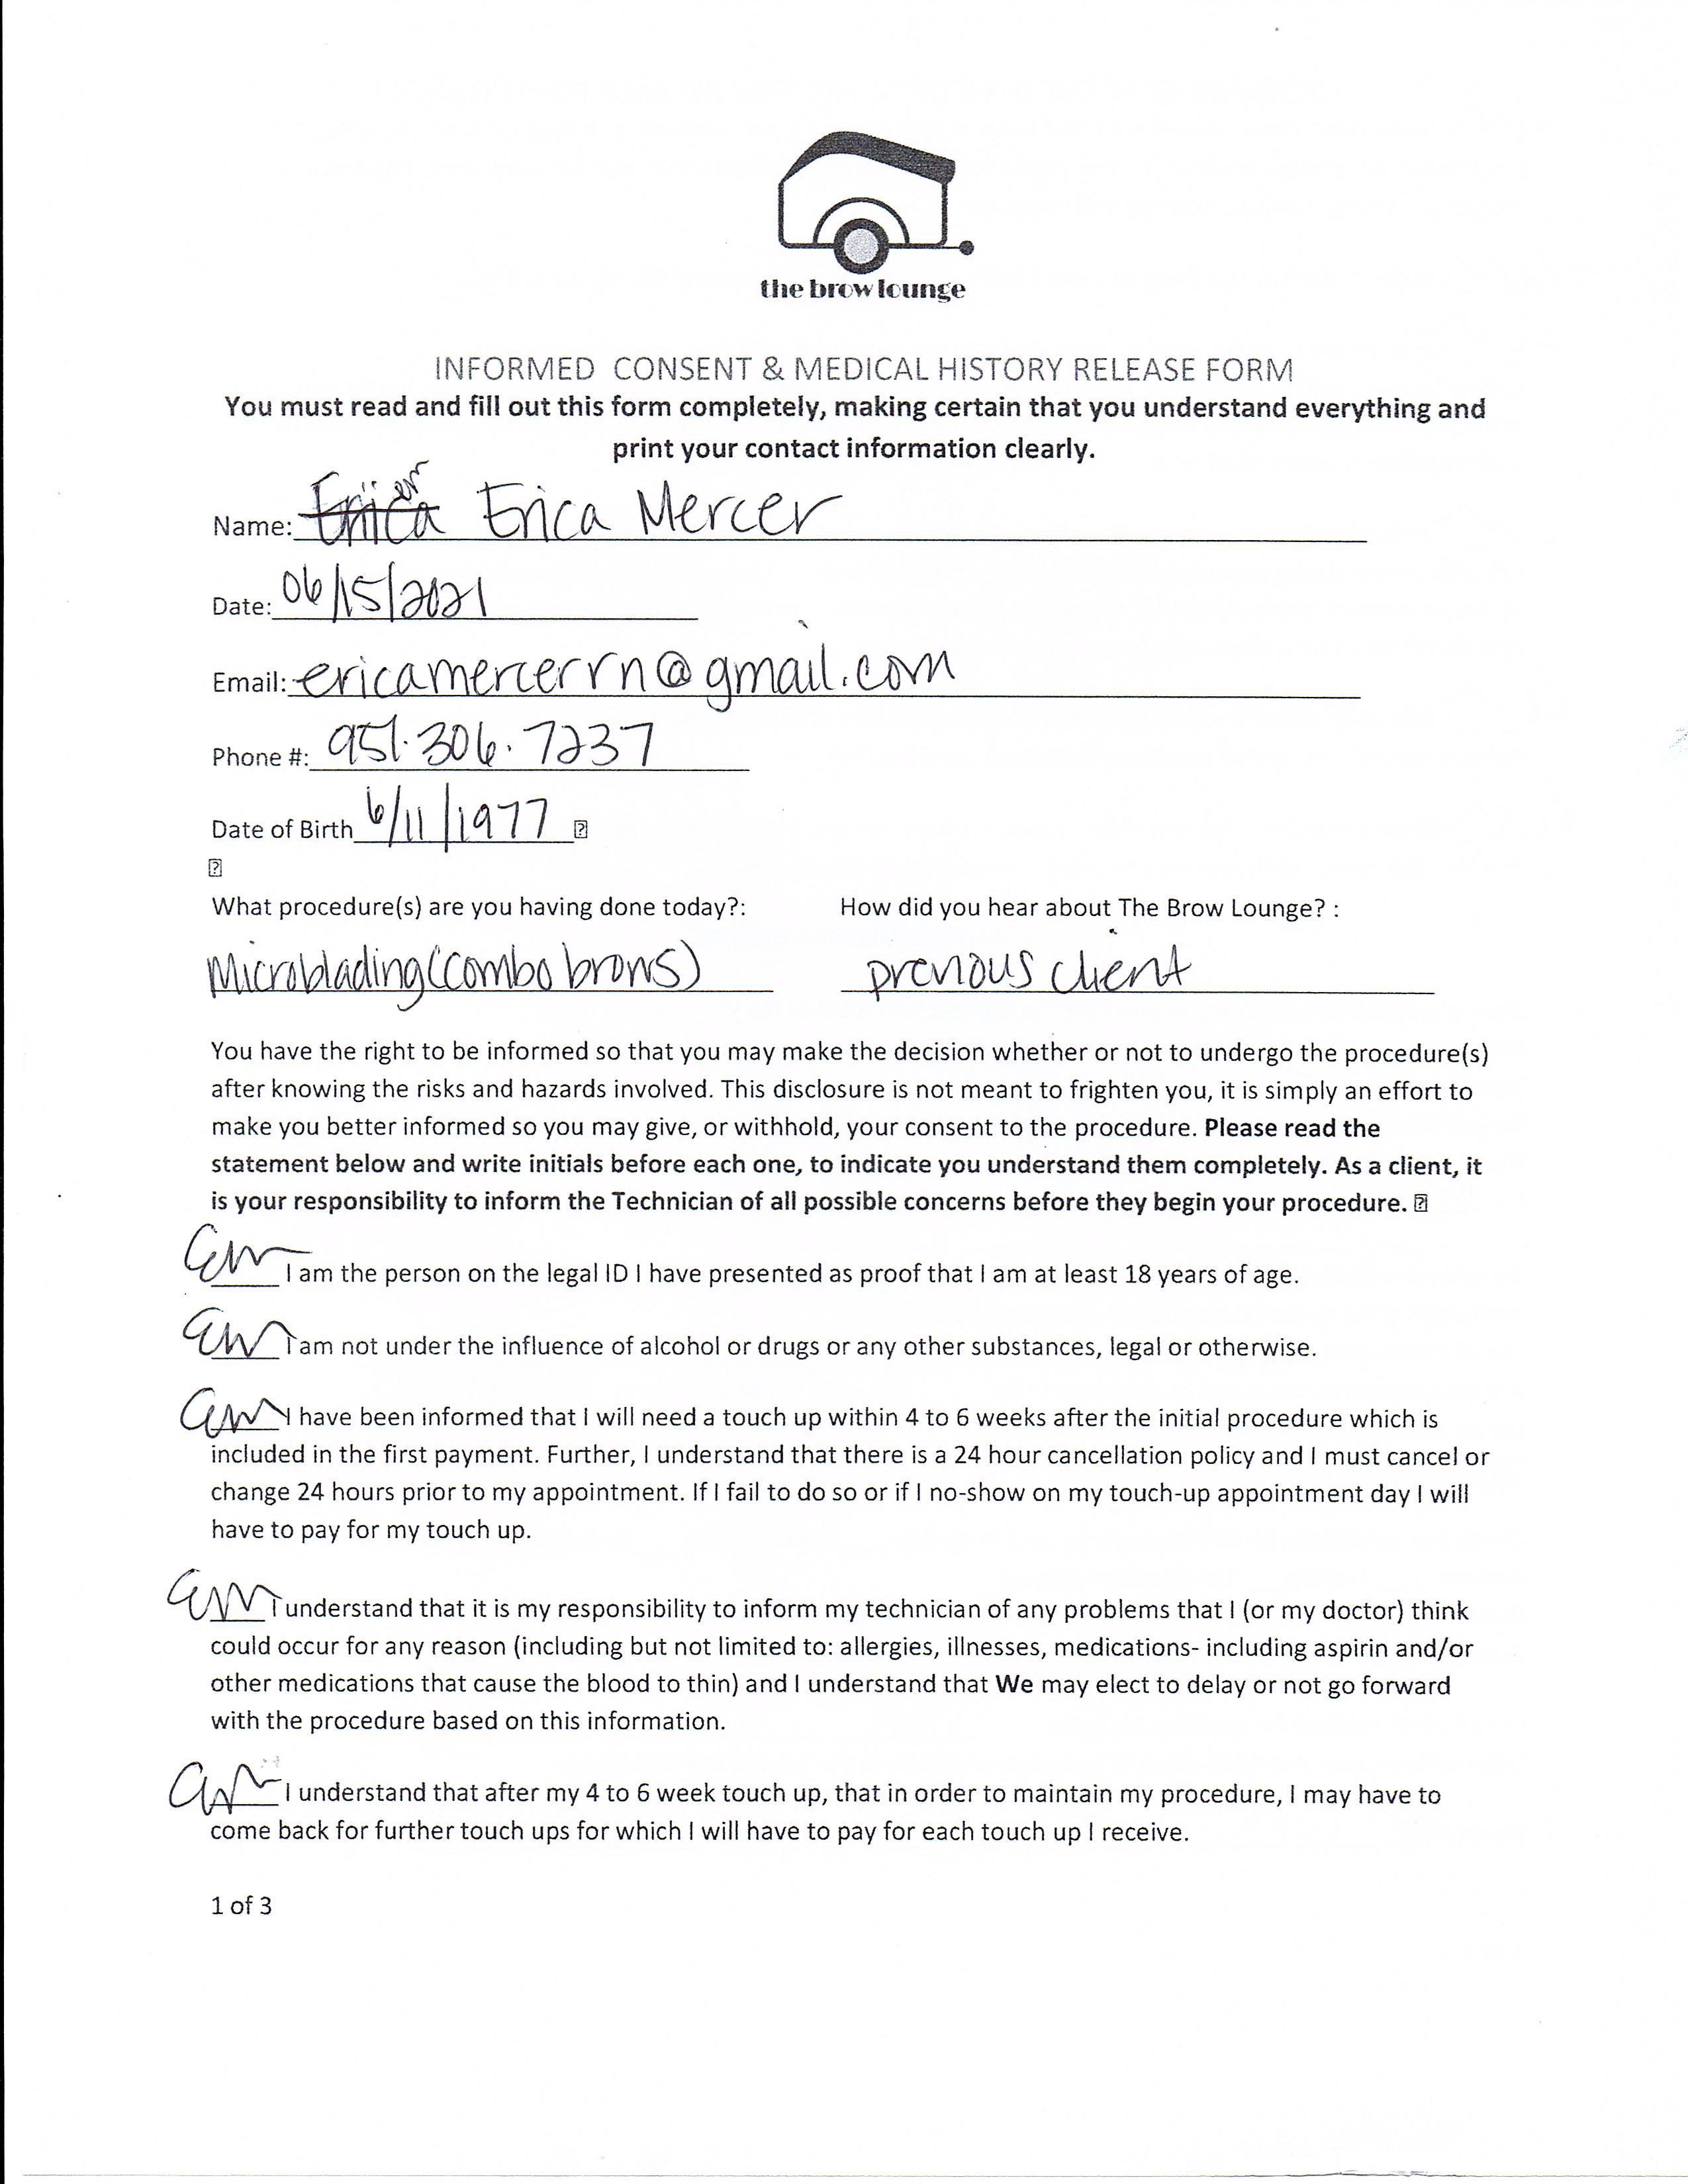 the brow lounge
INFORMED CONSENT & MEDICAL HISTORY RELEASE FORM
You must read and fill out this form completely, making certain that you understand everything and
print your contact information clearly.
Name: Erica er Erica Mercer
Date: 06/15/2021
Email: ericamercerrn@gmail.com
Phone #: 951.306.7237
Date of Birth 6/11/1977
What procedure(s) are you having done today?: How did you hear about The Brow Lounge? :
Microblading (combo brows) previous client
You have the right to be informed so that you may make the decision whether or not to undergo the procedure(s)
after knowing the risks and hazards involved. This disclosure is not meant to frighten you, it is simply an effort to
make you better informed so you may give, or withhold, your consent to the procedure. Please read the
statement below and write initials before each one, to indicate you understand them completely. As a client, it
is your responsibility to inform the Technician of all possible concerns before they begin your procedure.
EM I am the person on the legal ID I have presented as proof that I am at least 18 years of age.
EM I am not under the influence of alcohol or drugs or any other substances, legal or otherwise.
EM I have been informed that I will need a touch up within 4 to 6 weeks after the initial procedure which is
included in the first payment. Further, I understand that there is a 24 hour cancellation policy and I must cancel or
change 24 hours prior to my appointment. If I fail to do so or if I no-show on my touch-up appointment day I will
have to pay for my touch up.
EM I understand that it is my responsibility to inform my technician of any problems that I (or my doctor) think
could occur for any reason (including but not limited to: allergies, illnesses, medications- including aspirin and/or
other medications that cause the blood to thin) and I understand that We may elect to delay or not go forward
with the procedure based on this information.
EM I understand that after my 4 to 6 week touch up, that in order to maintain my procedure, I may have to
come back for further touch ups for which I will have to pay for each touch up I receive.
1 of 3